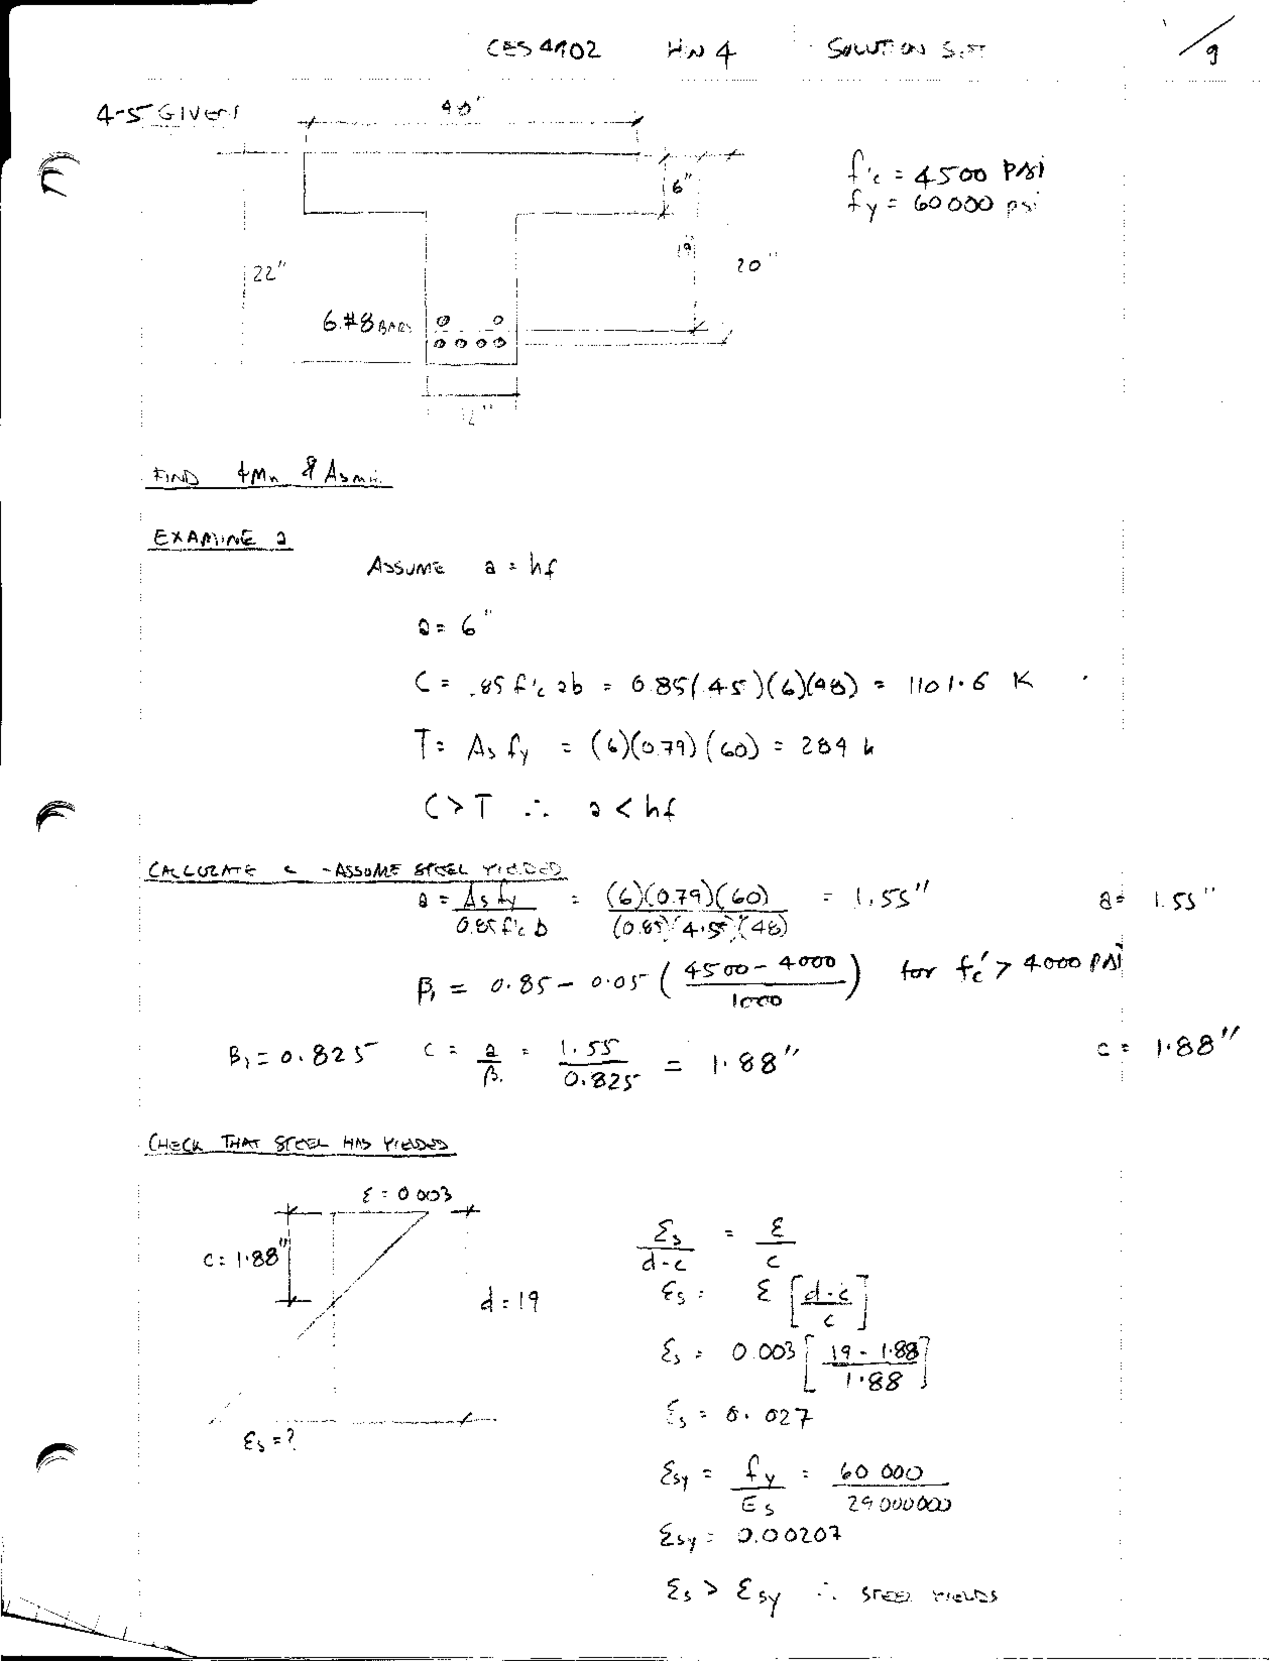 CES 4702 HW 4 SOLUTION SET 1/9
4-5 GIVEN
48"
f'c = 4500 PSI
6"
fy = 60000 psi
19"
22"
20"
6 #8 BARS
12"
FIND ϕMn & Asmin.
EXAMINE a
ASSUME a = hf
a = 6"
C = .85 f'c ab = 0.85(4.5)(6)(48) = 1101.6 K
T = As fy = (6)(0.79)(60) = 284 k
C > T ∴ a < hf
CALCULATE c - ASSUME STEEL YIELDED
a = As fy / 0.85 f'c b = (6)(0.79)(60) / (0.85)(4.5)(48) = 1.55" a = 1.55"
β1 = 0.85 - 0.05 ( 4500 - 4000 / 1000 ) for fc' > 4000 PSI
B1 = 0.825 c = a / β1 = 1.55 / 0.825 = 1.88" c = 1.88"
CHECK THAT STEEL HAS YIELDED
ε = 0.003
εs / d-c = ε / c
c = 1.88"
εs = ε [ d-c / c ]
d = 19
εs = 0.003 [ 19 - 1.88 / 1.88 ]
εs = 0.027
εs = ?
εsy = fy / Es = 60 000 / 29 000000
εsy = 0.00207
εs > εsy ∴ STEEL YIELDS